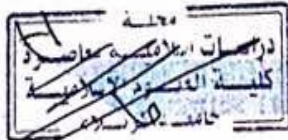 مجلة
دراسات اسلامية معاصرة
كلية العلوم الاسلامية
جامعة كربلاء